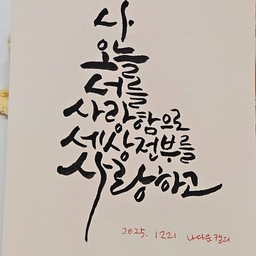 사
오늘
서를
사랑함으로
세상전부를
사랑하고
2025. 1221 나다운캘리